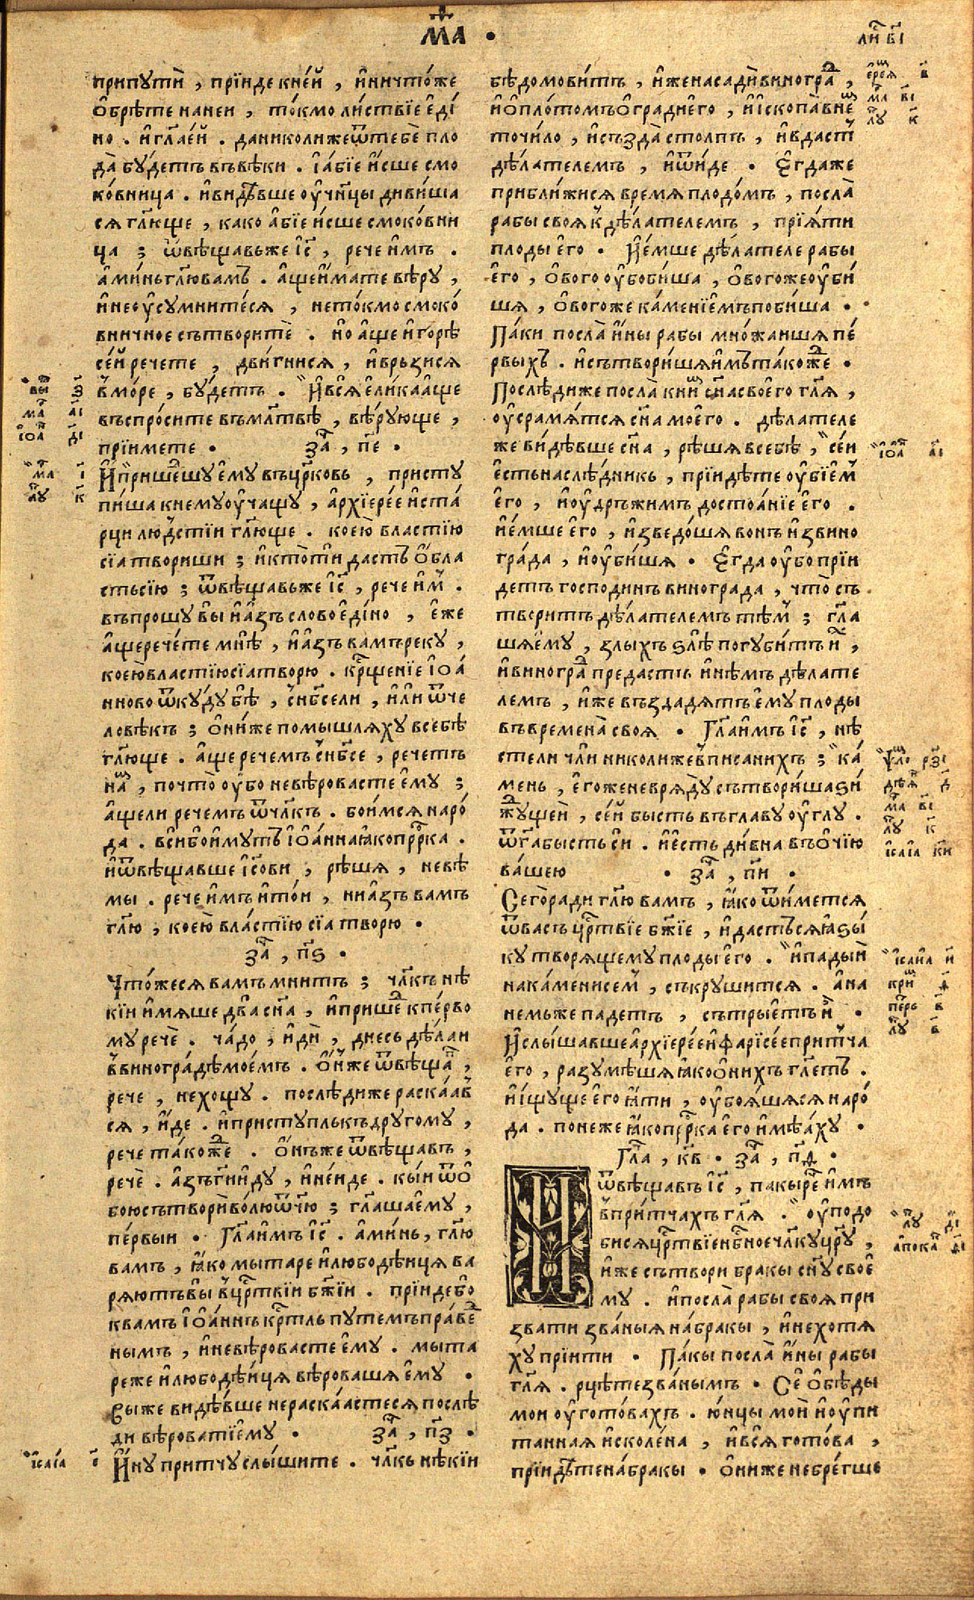 М҃А •
ли́ в҃і
припути̂ , прїиде кне́й , и҆ничто́же
ѻ҆брѣ́те нане́и , то́кмо ли́ствїе є҆ді
но . и҆гл҃аей . даниколижеѿтебѐ пло
да̀ бу́детъ въвѣ́ки . їа́бїе и҆́сше смо
ко́вница . и҆видѣ́вше оу҆чн҃цы диви́ша
ся гл҃юще , како а҆́бїе и҆́сше смоко́вни
ца ; ѿвѣщавъже і҃с , рече и҆́мъ .
а҆ми́ньгл҃ювамъ . а҆щеи҆́мате вѣ́ру ,
и҆неоу҆сумните́ся , нето́кмо смоко́
вничное сътворитѐ . но а҆ще и҆ горѣ̀
се́й рече́те , дви́гнися , и҆връ́зися
в҆мо́ре , бу́детъ . И҆вся̀ є҆ли́ка а҆́ще
въспро́сите въмл҃твѣ , вѣ́рующе ,
прїимете • за , п҃є •
И҆прише́шу є҆му̀ въцр҃ковь , присту
пи́ша кнему̀ оу҆ча́щу , а҆рхїере́е и҆ ста́
рци лю́дстїи гл҃юще . коею̀ властїю
сїа̀ твориши ; и҆кто̀ти дастъ ѻ҆́бла
стьсїю ; ѿвѣща́вже і҃с , рече и҆м .
въпрошу̀ вы̀ и҆ а҆́зъ сло́во є҆ди́но , є҆́же
а҆щерече́те мнѣ̀ , и҆ а҆́зъ ва́мъ реку̀ ,
коею̀вла́стїюсїа̀творю̀ . кр҃щенїе і҆ѻа́
нново ѿку́ду бѣ̀ , сн҃бсели , и҆ли ѿче
ловѣ́къ ; ѻ҆ни́же помышля́ху всебѣ̀
гл҃юще . а҆щеречемъ сн҃бсе , рече́тъ
на , почто̀ оу҆бо невѣ́ровасте є҆му ;
а҆щели рече́мъ ѿчл҃къ . бои́мся наро́
да . вси́боимутъ і҆ѻа́нна ꙗ҆́коп҃ррка .
и҆ѿвѣща́вше і҃сови , рѣ́шя , невѣ́
мы . рече и҆́мъ и҆то́и , ни а҆́зъ ва́мъ
гл҃ю , кое́ю вла́стїю сїа̀ творю̀ •
за , п҃ѕ •
Что́жеся ва́мъ мни́тъ ; чл҃къ нѣ́
кїи и҆мяше два̀ сн҃а , и҆прише́ кпе́рво
му рече̂ . ча́до , и҆ди̂ , дне́сь дѣ́лаи
ввиногра́дѣмое́мъ . ѻ҆́нже ѿвѣща ,
рече , нехощу̀ . послѣдиже раска́ав
ся , и҆́де . и҆присту́плькъ дру́гому ,
рече тако́же . ѻ҆́нъже ѿвѣща́въ ,
рече̂ . а҆зъ гн҃и иду̀ , и҆не́иде . кы́и ѿѻ
бою̀ сътвори̂ во́лю ѿ́чю ; гл҃аша є҆му ,
пе́рвыи • Гл҃аи҆́мъ і҃с . а҆ми́нь , гл҃ю
вамъ , ꙗ҆́ко мытаре и҆ любодѣ́иця ва
ря́ютъ вы̀ вцр҃твїи бж҃їи . прїиде бо
квамъ і҆ѻа́ннъ кр҃тль путе́мъ пра́ве
нымъ , и҆невѣ́ровасте є҆му . мыта
реже и҆ любодѣ́иця вѣ́ровашя є҆му •
вы́же ви́дѣвше нераска́астеся послѣ
ди вѣ́ровати є҆му • за , п҃з •
И҆́ну при́тчу слы́шите . чл҃къ нѣ́кїи
бѣ̀ домови́тъ , и҆́же насади̂ виногра ,
и҆ ѻ҆пло́томъ ѻ҆гради̂ є҆го , и҆ и҆скопа̀ в не
точи́ло , и҆създа̀ столпъ , и҆ вдаст
дѣ́лателемъ , и҆ ѿи́де • Є҆гда́же
прибли́жися вре́мя плодо́мъ , посла̀
рабы своя̀ к дѣ́лателемъ , прїя́ти
плоды̀ є҆го • И҆ е҆́мше дѣ́лателе рабы
є҆го , ѻ҆́вого оу҆бо би́ша , ѻ҆́вогоже оу҆би
шя , ѻ҆́вогоже ка́менїемъ поби́ша •
Па́ки посла̀ и҆́ны рабы мно́жаишя пе́
рвыхъ . и҆ сътвори́шя и҆мъ тако́же •
Послѣдиже посла̀ кни́ сн҃а своего̀ гл҃я ,
оу҆срамя́тся сн҃а мое́го . дѣ́лателе
же ви́дѣвше сн҃а , рѣ́шя всебѣ̀ , се́и
є҆́сть наслѣ́дникъ , прїидѣ́те оу҆бїе́м
є҆го , и҆ оу҆дръжи́мъ достоа́нїе є҆го .
и҆ е҆́мше є҆го , и҆зведо́шя во́нъ и҆звино
гра́да , и҆ оу҆би́шя • Є҆гда оу҆бо прїи
детъ господи́нъ винограда , что̀ съ
твори́тъ дѣ́лателемъ тѣм ; гл҃а
шя є҆му , злы́хъ ѕлѣ̀ погуби́тъ и҆ ,
и҆ виногра преда́стъ и҆нѣ́мъ дѣ́лате
лемъ , и҆́же въздадя́тъ є҆му плоды
въвремена̀ своя̀ • Гл҃а и҆́мъ і҃с , нѣ́
стели чли николиже вписанихъ ; ка́
мень , є҆го́же невряду̀ сътвори́ша зи́
жущеи , се́й бы́сть въглаву̀ оу҆́глу .
ѿга бысть си . и҆ є҆сть ди́вна въ ѻ҆чїю
ва́шею • за , п҃и •
Сего̀ ради гл҃ю ва́мъ , ꙗ҆́ко ѿи́мется
ѿва́съ цр҃твїе бж҃їе , и҆ да́стъся ꙗ҆зы́
ку творя́щему плоды̀ є҆го . и҆ пады́и
на ка́мени се́м , съкруши́тся . а҆ на
не́мьже паде́тъ , сътры́етъ и҆ •
И҆ слы́шавше а҆рхїере́е и҆ фарїсе́е при́тча
є҆го , разумѣ́шя ꙗ҆ко ѻ҆ ни́хъ гл҃етъ .
и҆ и҆́щуще є҆го ꙗ҆́ти , оу҆боя́шяся наро́
да . поне́же ꙗ҆́ко пр҃рка є҆го и҆мѣ́аху •
Гл҃а , к҃в • за , п҃д •
И ѿвѣща́въ і҃с , па́кы ре́ и҆мъ
впри́тчахъ гл҃я . оу҆подо
бися цр҃твїе нб҃ное чл҃ку цр҃ю ,
и҆́же сътвори бра́кы сн҃у свое
му̀ . и҆ посла̀ рабы своя̀ при
зва́ти зва́ныя на́ бракы , и҆ нехотя́
ху прїити • Па́кы посла̀ и҆́ны рабы
гл҃я . рцѣ́те зва́нымъ • Се́ ѻ҆бѣ́ды
мои оу҆гото́вахъ . ю҆нцы мои̂ и҆ оу҆пи
та́нная и҆сколе́на , и҆ вся̀ гото́ва ,
прїидѣ́те на́ бракы • ѻ҆ни́же небре́гше